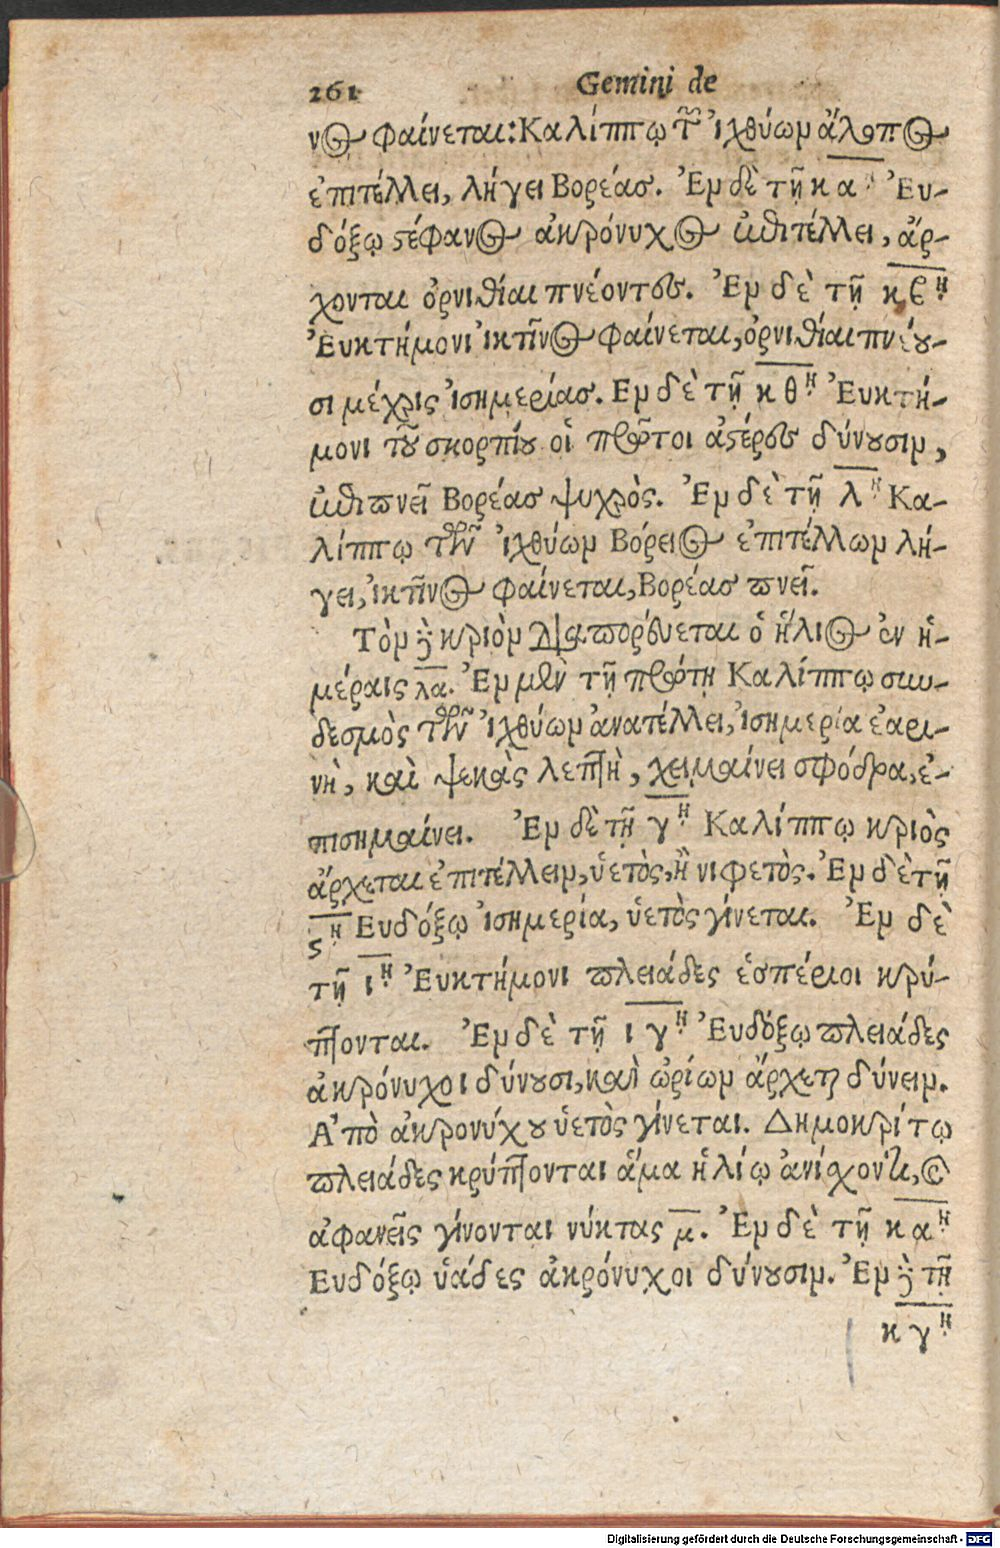 261 Gemini de
νος φαίνεται: Καλίππῳ τῶν ἰχθύωμ ἄλοπος
ἐπιτέλλει, λήγει Βορέας. Ἐμ δὲ τῇ κα Ἐυ-
δόξῳ στέφανος ἀκρόνυχος ἐπιτέλλει, ἄρ-
χονται ὀρνιθίαι πνέοντες. Ἐμ δὲ τῇ κβῃ
Ἐυκτήμονι ἰκτῖνος φαίνεται, ὀρνιθίαι πνέου-
σι μέχρις ἰσημερίας. Εμ δὲ τῇ κθῃ Ἐυκτή-
μονι τοῦ σκορπίου οἱ πρῶτοι ἀστέρες δύνουσιμ,
ἐπιπνεῖ Βορέας ψυχρὸς. Ἐμ δὲ τῇ λῃ Κα-
λίππῳ τῶν ἰχθύωμ Βόρειος ἐπιτέλλωμ λή-
γει, ἰκτῖνος φαίνεται, Βορέας πνεῖ.
Τὸμ δὲ κριὸμ διαπορεύεται ὁ ἥλιος ἐν ἡ-
μέραις λα. Ἐμ μὲν τῇ πρώτῃ Καλίππῳ συν-
δεσμὸς τῶν ἰχθύωμ ἀνατέλλει, ἰσημερία ἐαρι-
νὴ, καὶ ψεκὰς λεπτὴ, χειμαίνει σφόδρα, ἐ-
πισημαίνει. Ἐμ δὲ τῇ γῃ Καλίππῳ κριὸς
ἄρχεται ἐπιτέλλειμ, ὑετὸς, ἢ νιφετὸς. Ἐμ δὲ τῇ
ϛῃ Ευδόξῳ ἰσημερία, ὑετὸς γίνεται. Ἐμ δὲ
τῇ ιῃ Ἐυκτήμονι πλειάδες ἑσπέριοι κρύ-
πτονται. Ἐμ δὲ τῇ ιγῃ Ἐυδόξῳ πλειάδες
ἀκρόνυχοι δύνουσι, καὶ ὠρίωμ ἄρχεται δύνειμ.
Ἀπὸ ἀκρονύχου ὑετὸς γίνεται. Δημοκρίτῳ
πλειάδες κρύπτονται ἅμα ἡλίῳ ἀνίσχοντι, καὶ
ἀφανεῖς γίνονται νύκτας μ. Ἐμ δὲ τῇ καῃ
Ευδόξῳ ὑάδες ἀκρόνυχοι δύνουσιμ. Ἐμ δὲ τῇ
κγῃ
Digitalisierung gefördert durch die Deutsche Forschungsgemeinschaft - DFG